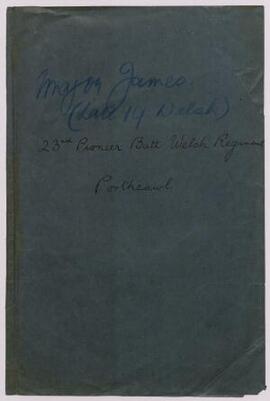 Major James.
(late 14 Welsh)
23rd Pioneer Batt Welsh Regiment
Porthcawl